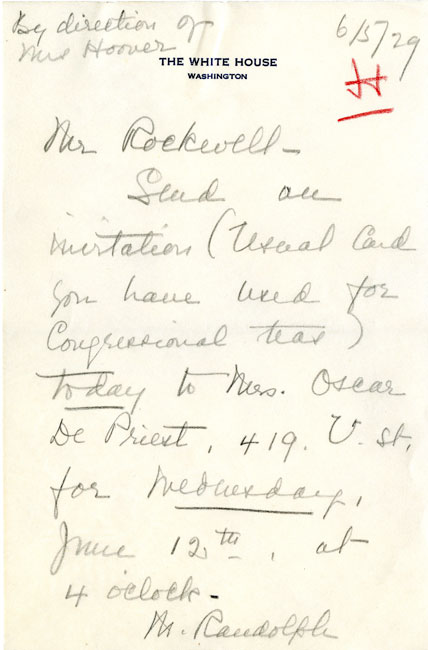 By direction of
Mrs Hoover
6/5/29
THE WHITE HOUSE
WASHINGTON
H
Mr Rockwell —
Send an
invitation (Usual Card
you have used for
Congressional teas)
today to Mrs. Oscar
De Priest, 419. U. st.
for Wednesday,
June 12th, at
4 o'clock -
M. Randolph